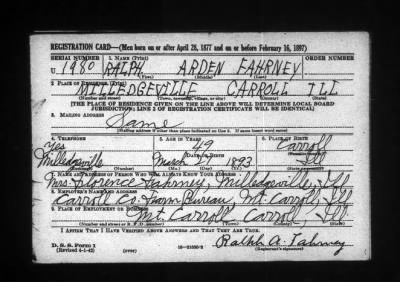 REGISTRATION CARD—(Men born on or after April 28, 1877 and on or before February 16, 1897)
SERIAL NUMBER 1. NAME (Print) ORDER NUMBER
U 1980 RALPH ARDEN FAHRNEY
(First) (Middle) (Last)
2. PLACE OF RESIDENCE (Print)
MILLEDGEVILLE CARROLL ILL
(Number and street) (Town, township, village, or city) (County) (State)
[THE PLACE OF RESIDENCE GIVEN ON THE LINE ABOVE WILL DETERMINE LOCAL BOARD
JURISDICTION; LINE 2 OF REGISTRATION CERTIFICATE WILL BE IDENTICAL]
3. MAILING ADDRESS
Same
[Mailing address if other than place indicated on line 2. If same insert word same]
4. TELEPHONE 5. AGE IN YEARS 6. PLACE OF BIRTH
Yes 49 Carroll
DATE OF BIRTH
Milledgeville March 21 1893 Ill
7. NAME AND ADDRESS OF PERSON WHO WILL ALWAYS KNOW YOUR ADDRESS
Mrs. Florence Fahrney, Milledgeville, Ill
8. EMPLOYER'S NAME AND ADDRESS
Carroll Co. Farm Bureau, Mt. Carroll, Ill
9. PLACE OF EMPLOYMENT OR BUSINESS
Mt. Carroll, Carroll, Ill
(Number and street or R. F. D. number) (Town) (County) (State)
I AFFIRM THAT I HAVE VERIFIED ABOVE ANSWERS AND THAT THEY ARE TRUE.
D. S. S. Form 1
(Revised 4-1-42) (over) 16—21630-2 Ralph A. Fahrney
(Registrant's signature)